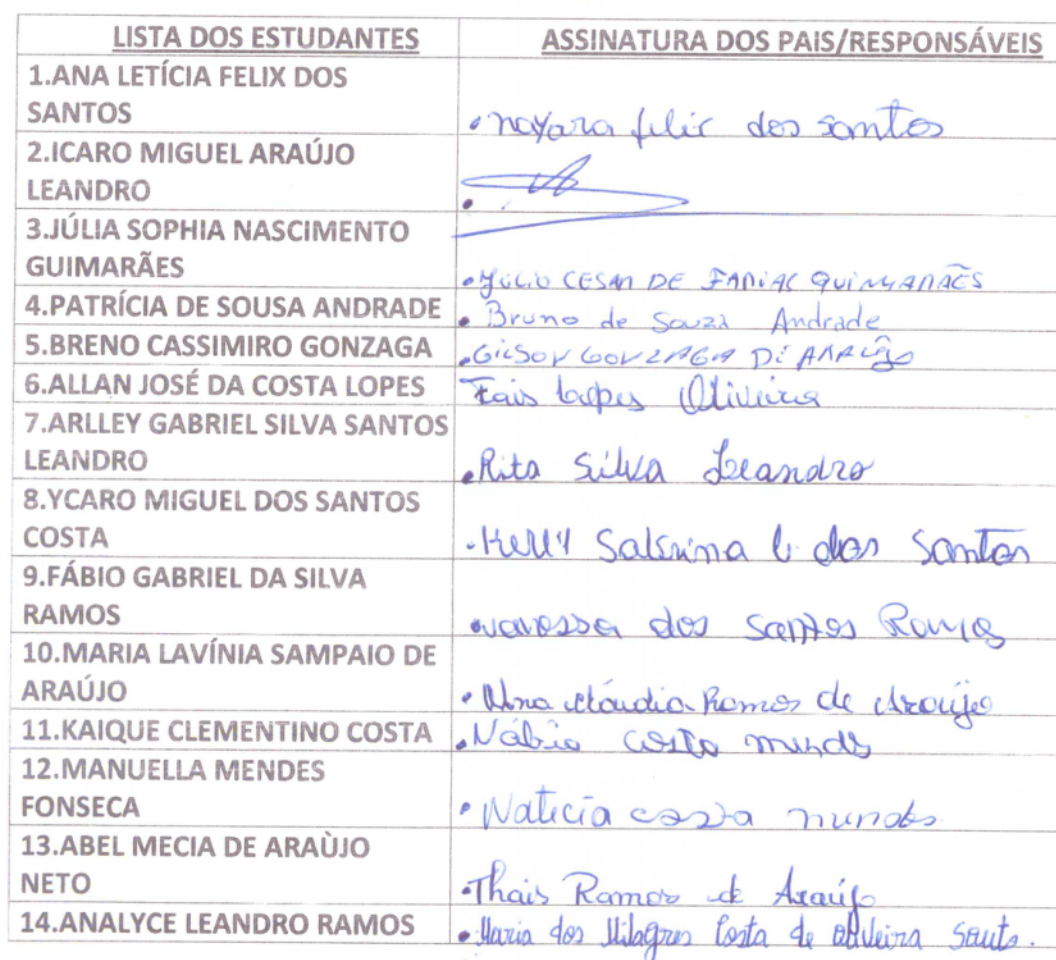 LISTA DOS ESTUDANTES ASSINATURA DOS PAIS/RESPONSÁVEIS
1.ANA LETÍCIA FELIX DOS
SANTOS
nayara felix dos santos
2.ICARO MIGUEL ARAÚJO
LEANDRO
3.JÚLIA SOPHIA NASCIMENTO
GUIMARÃES
CESAR DE FARIAS GUIMARÃES
4.PATRÍCIA DE SOUSA ANDRADE Bruno de Souza Andrade
5.BRENO CASSIMIRO GONZAGA GILSON GONZAGA DE ARAÚJO
6.ALLAN JOSÉ DA COSTA LOPES Tais Lopes Oliveira
7.ARLLEY GABRIEL SILVA SANTOS
LEANDRO
Rita Silva Leandro
8.YCARO MIGUEL DOS SANTOS
COSTA
dos Santos
9.FÁBIO GABRIEL DA SILVA
RAMOS
vanessa dos Santos Ramos
10.MARIA LAVÍNIA SAMPAIO DE
ARAÚJO
Ana Cláudia Ramos de Araújo
11.KAIQUE CLEMENTINO COSTA costa
12.MANUELLA MENDES
FONSECA
costa
13.ABEL MECIA DE ARAÙJO
NETO
Thais Ramos de Araújo
14.ANALYCE LEANDRO RAMOS Maria dos Milagres Costa de oliveira